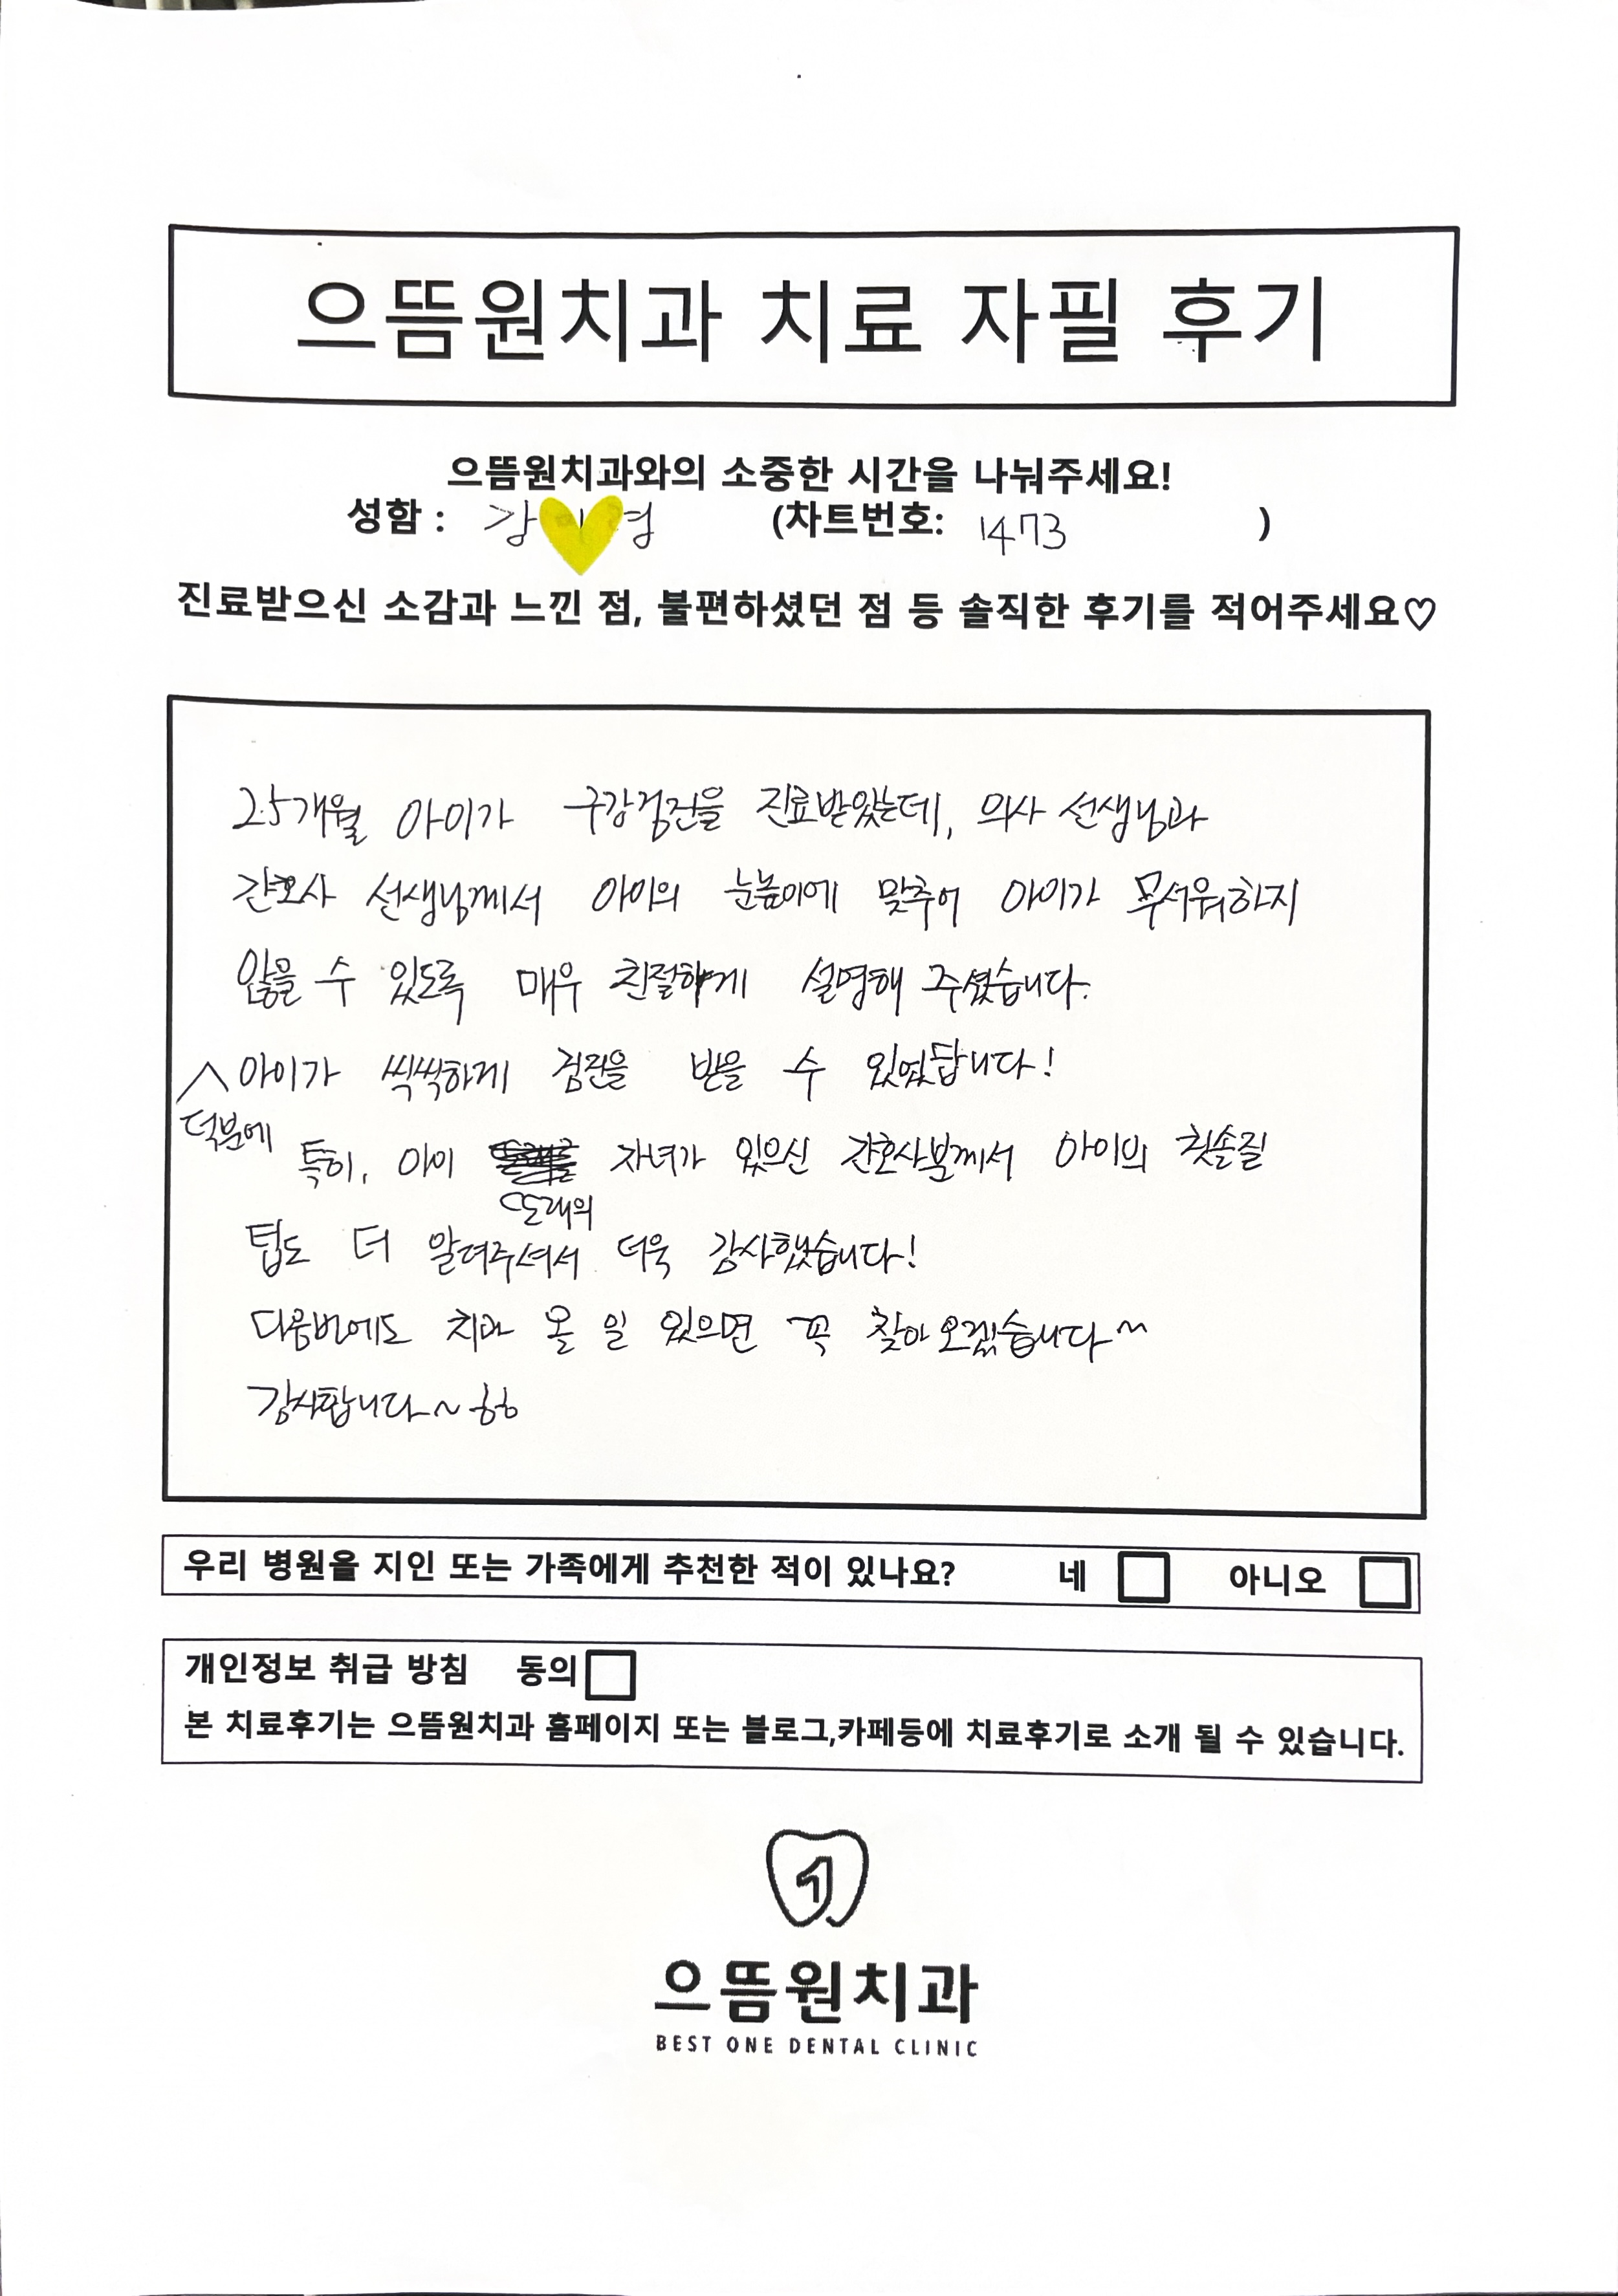 으뜸원치과 치료 자필 후기
으뜸원치과와의 소중한 시간을 나눠주세요!
성함 : 강 경 (차트번호: 1473 )
진료받으신 소감과 느낀 점, 불편하셨던 점 등 솔직한 후기를 적어주세요♡
25개월 아이가 구강검진을 진료받았는데, 의사 선생님과
간호사 선생님께서 아이의 눈높이에 맞추어 아이가 무서워하지
않을 수 있도록 매우 친절하게 설명해 주셨습니다.
아이가 씩씩하게 검진을 받을 수 있었답니다!
덕분에
특히, 아이 자녀가 있으신 간호사분께서 아이의 칫솔질
또래의
팁도 더 알려주셔서 더욱 감사했습니다!
다음번에도 치과 올 일 있으면 꼭 찾아오겠습니다~
감사합니다~ㅎㅎ
우리 병원을 지인 또는 가족에게 추천한 적이 있나요? 네 아니오
개인정보 취급 방침 동의
본 치료후기는 으뜸원치과 홈페이지 또는 블로그,카페등에 치료후기로 소개 될 수 있습니다.
1
으뜸원치과
BEST ONE DENTAL CLINIC